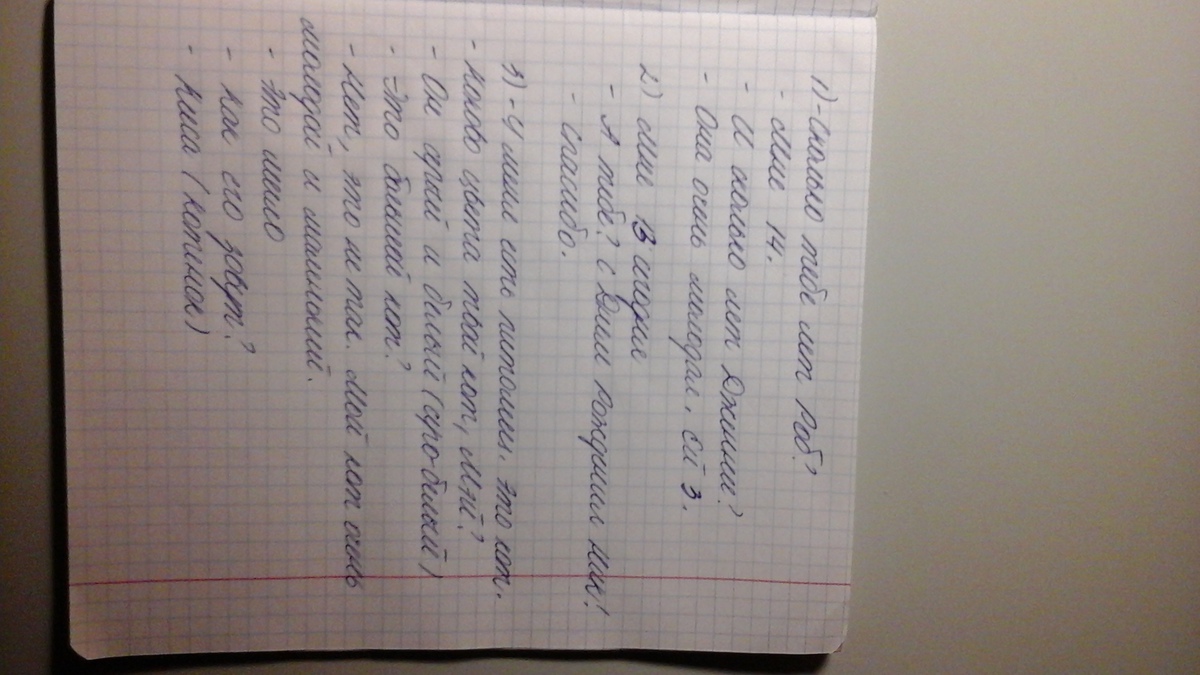 1) - Сколько тебе лет Роб?
- Мне 14.
- И сколько лет Джимми?
- Она очень молодая. Ей 3.
2) Мне 13 сегодня
- А тебе? С Днем рождения Ник!
- Спасибо.
3) - У меня есть питомец. Это кот.
- Каково цвета твой кот, Мэй?
- Он серый и белый (серо-белый)
- Это большой кот?
- Нет, это не так. Мой кот очень
молодой и маленький.
- Это мило
- Как его зовут?
- Киса (котинок)